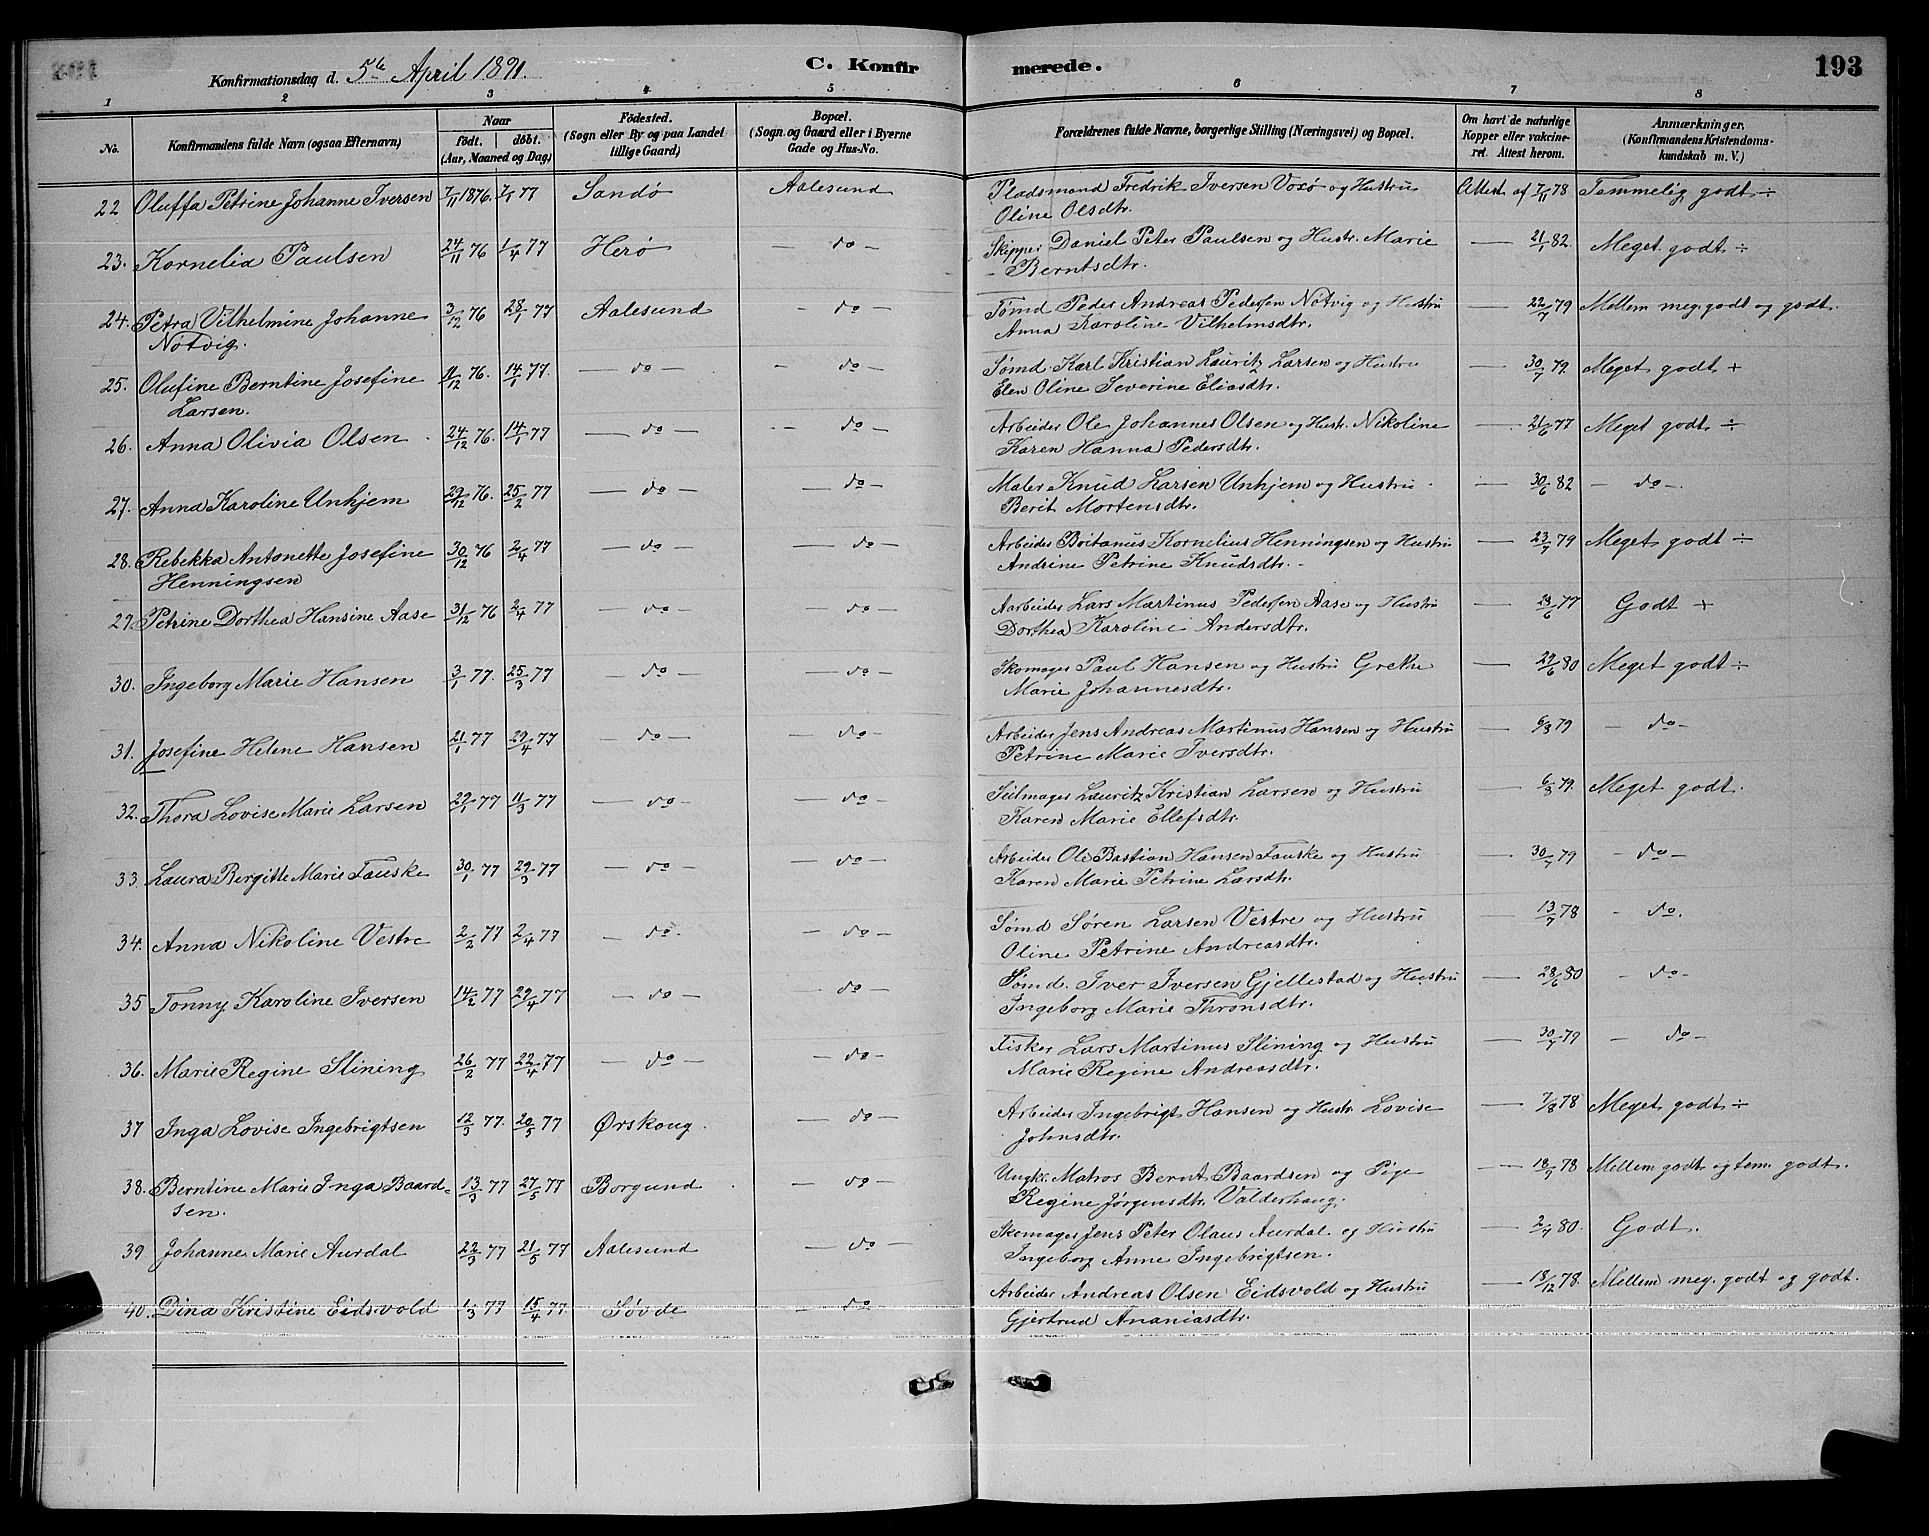 Konfirmationsdag d. 5te April 1891.
C. Konfirmerede.
193
1 2 3 4 5 6 7 8
No. Konfirmandens fulde Navn (ogsaa Efternavn) Naar født. døbt. (Aar, Maaned og Dag) Fødested. (Sogn eller By og paa Landet tillige Gaard) Bopæl. (Sogn og Gaard eller i Byerne Gade og Hus-No. Forældrenes fulde Navne, borgerlige Stilling (Næringsvei) og Bopæl. Om havt de naturlige Kopper eller vakcineret. Attest herom. Anmærkninger. (Konfirmandens Kristendomskundskab m. V.)
22 Oluffa Petrine Johanne Iversen 7/11 1876. 7/1 77 Sandø Aalesund Pladsmand Fredrik Iversen Voksø og Hustru Attest af 7/11 78 Temmelig godt ÷
Oline Olsdtr.
23. Kornelia Paulsen 24/11 76 1/4 77 Herø — do — Skipper Daniel Peter Paulsen og Hustr. Marie — 21/1 82. Meget godt ÷
Berntsdtr.
24. Petra Vilhelmine Johanne 3/12 76 28/1 77 Aalesund — do — Tømd Peder Andreas Pedersen Nøtvig og Hustru — 22/7 79 Mellem meg. godt og godt.
Nøtvig. Anna Karoline Vilhelmsdtr.
25. Olufine Berntine Josefine 11/12 76. 14/1 77. — do — - do — Sømd. Karl Kristian Lauritz Larsen og Hustru — 30/7 79. Meget godt +
Larsen. Elen Oline Severine Eliasdtr.
26. Anna Olivia Olsen 24/12 76. 14/1 77 — do — -- do — Arbeider Ole Johannes Olsen og Hustr. Nikoline — 21/6 77 Meget godt ÷
Karen Hanna Pedersdtr.
27. Anna Karoline Unhjem 29/12 76. 25/2 77 — do — — do — Maler Knud Larsen Unhjem og Hustru — 30/6 82 - do -
Berit Mortensdtr.
28. Rebekka Antonette Josefine 30/12 76 2/4 77 — do — — do — Arbeider Boitanus Kornelius Henningsen og Hustru — 23/7 79 Meget godt ÷
Henningsen Andrine Petrine Knudsdtr.
29. Petrine Dorthea Hansine Aase 31/12 76 2/4 77 — do — — do — Aarbeider Lars Martinus Pedersen Aase og Hustru — 23/6 77 Godt +
Dorthea Karoline Andersdtr.
30. Ingeborg Marie Hansen 3/1 77. 25/3 77 — do — — do — Skomager Paul Hansen og Hustru Grethe — 29/6 80 Meget godt ÷
Marie Johannesdtr.
31. Josefine Helene Hansen 21/1 77 29/4 77 — do — — do — Arbeider Jens Andreas Martinus Hansen og Hustru — 6/8 79 - do -
Petrine Marie Iversdtr.
32. Thora Lovise Marie Larsen 29/1 77 11/3 77 — do — — do — Seilmager Lauritz Kristian Larsen og Hustru 6/8 79. Meget godt.
Karen Marie Ellefsdtr.
33. Laura Bergitte Marie Fauske 30/1 77 29/3 77 — do — — do — Arbeider Ole Bastian Hansen Fauske og Hustru — 30/7 79 - do -
Karen Marie Petrine Larsdtr.
34. Anna Nikoline Vestre 2/2 77 2/4 77 — do. — do — Sømd Søren Larsen Vestre og Hustru — 13/7 78 - do.
Oline Petrine Andreasdtr.
35 Tonny Karoline Iversen 14/2 77 29/4 77 — do — — do — Sømd. Iver Iversen Gjellestad og Hustru — 28/6 80 - do -
Ingeborg Marie Thronsdtr.
36. Marie Regine Slining 26/2 77 22/4 77 — do — — do — Fisker Lars Martinus Slining og Hustru — 30/7 79 - do -
Marie Regine Andreasdtr.
37 Inga Lovise Ingebrigtsen 12/3 77. 20/5 77 Ørskoug. — do — Arbeider Ingebrigt Hansen og Hustr. Lovise — 7/8 78 Meget godt ÷
Johnsdtr.
38. Berntine Marie Inga Baard- 13/3 77 27/5 77 Borgund — do — Ungk. Matros Bernt Baardsen og Pige — 18/9 78 Mellem godt og tem. godt.
sen. Regine Jørgensdtr. Valderhaug.
39 Johanne Marie Aurdal 22/3 77 21/5 77 Aalesund — do — Skomager Jens Peter Olaus Aurdal og Hustru — 2/7 80. Godt.
Ingeborg Anne Ingebrigtsen.
40. Dina Kristine Eidsvold 1/3 77 15/4 77 Søvde — do Arbeider Andreas Olsen Eidsvold og Hustru — 18/12 78. Mellem meg. godt og godt.
Gjertrud Ananiasdtr.